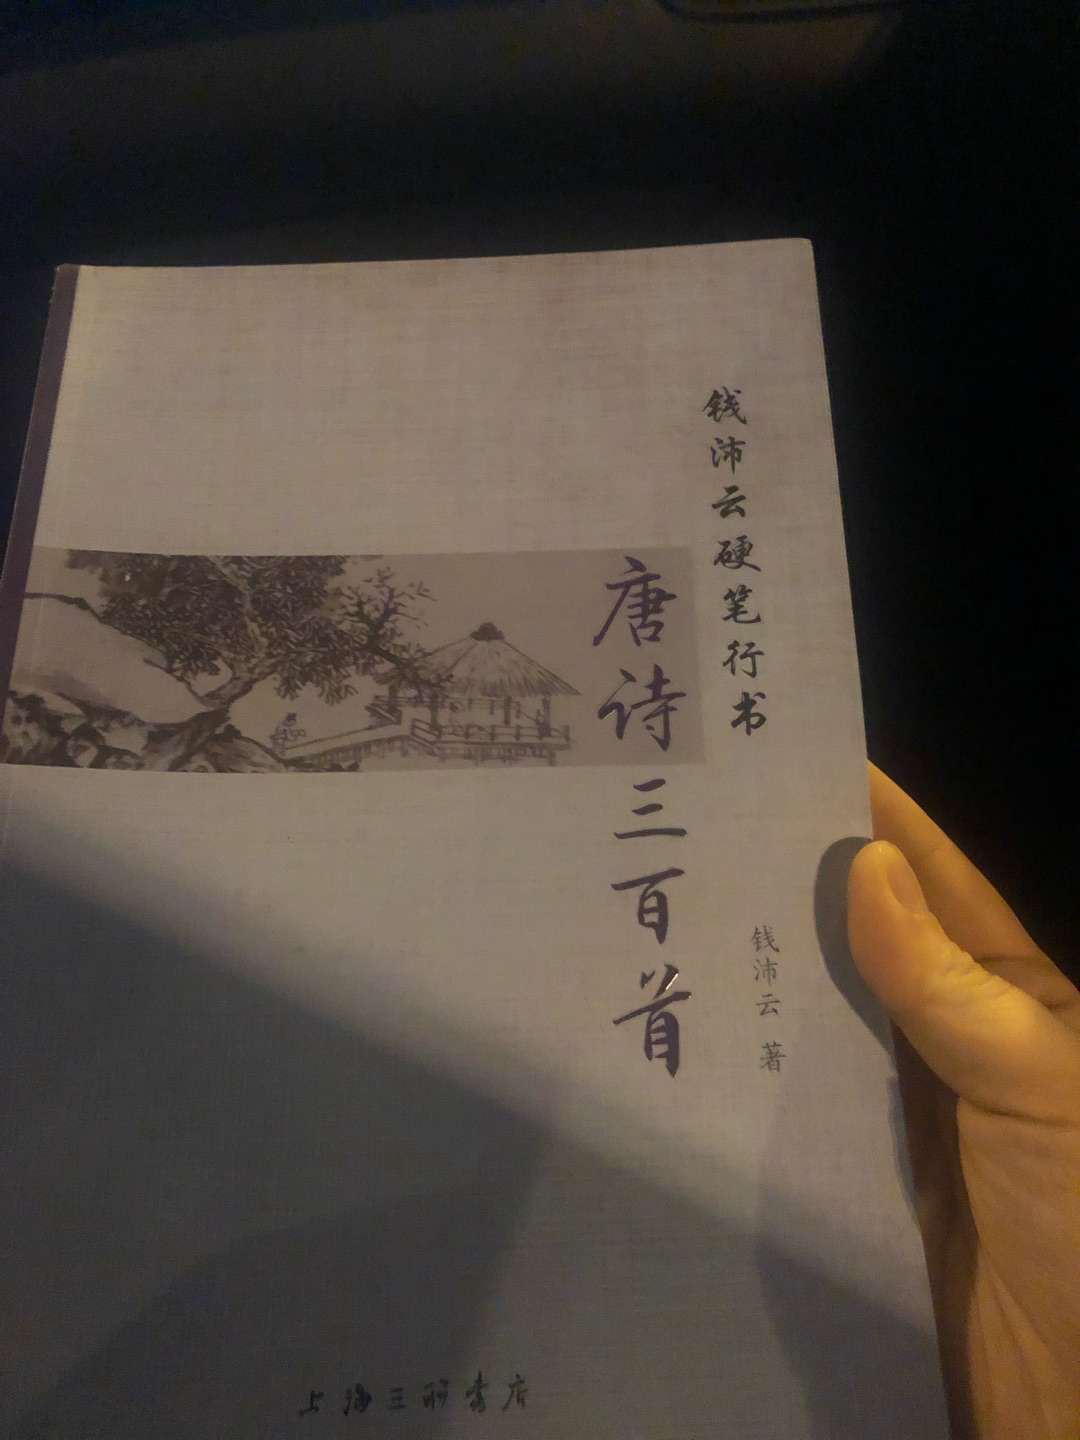 钱沛云硬笔行书
唐诗三百首
钱沛云 著
上海三联书店